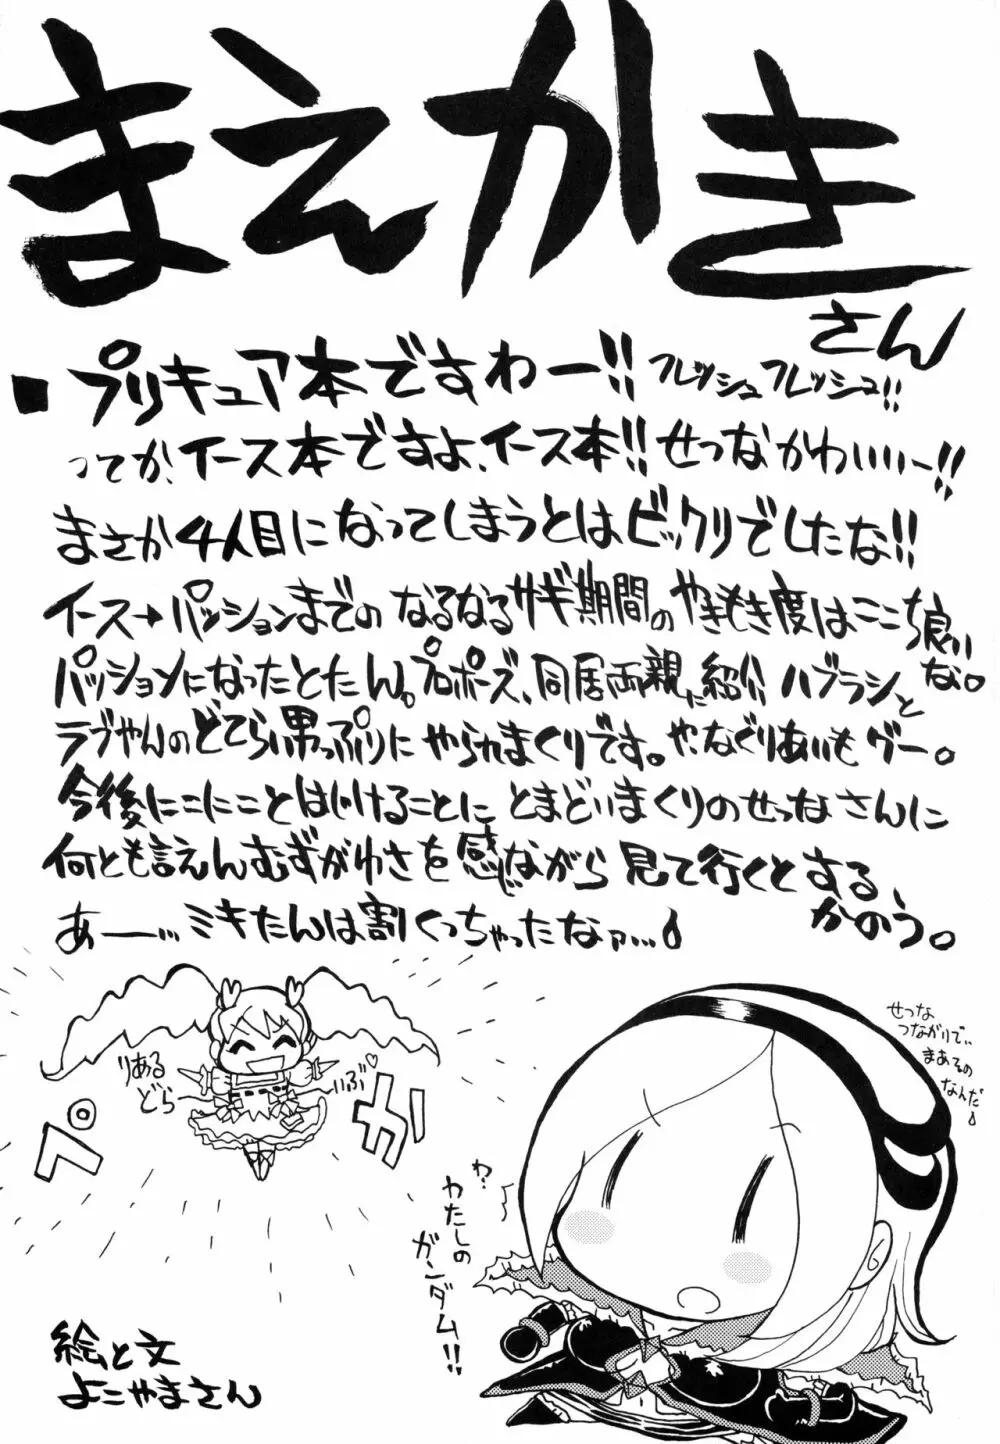 まえかき
さん
■プリキュア本ですわー!! フレッシュフレッシュ!!
ってか、イース本ですよ、イース本!! せつなかわいいー!!
まさか4人目になってしまうとはビックリでしたな!!
イース→パッションまでのなるなるサギ期間のやきもき度はここち良いな。
パッションになったとたん。プロポーズ、同居、両親に紹介 ハブラシと
ラブやんのどてらい男っぷりにやられまくりです。や、なぐりあいもグー。
今後にこにことはじけることにとまどいまくりのせつなさんに
何とも言えんむずがゆさを感じながら見て行くとする、かのう。
あー…ミキたんは割くっちゃったなァ…
りある
どら
いぶ♥
ペ
カ
せつな
つながりで、、
まあその
なんだ
わ、
わたしの
ガンダム!!
絵と文
よこやまさん